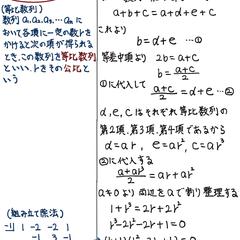 (等比数列)
数列 a₁, a₂, a₃, … aₙ に
おいて各項に一定の数rを
かけると次の項が得られる
とき、この数列を等比数列
といい、rをその公比と
いう
(組み立て除法)
-1| 1 -2 -2 1
-1 3 -1
a+b+c = a+d+e+c
これより
b = d+e …①
等差中項より 2b = a+c
b = (a+c)/2
①に代入して (a+c)/2 = d+e …②
d, e, cはそれぞれ等比数列の
第2項、第3項、第4項であるから
d = ar, e = ar², c = ar³
②に代入する
(a+ar³)/2 = ar+ar²
a≠0より両辺をaで割り整理する
1+r³ = 2r+2r²
r³-2r²-2r+1 = 0